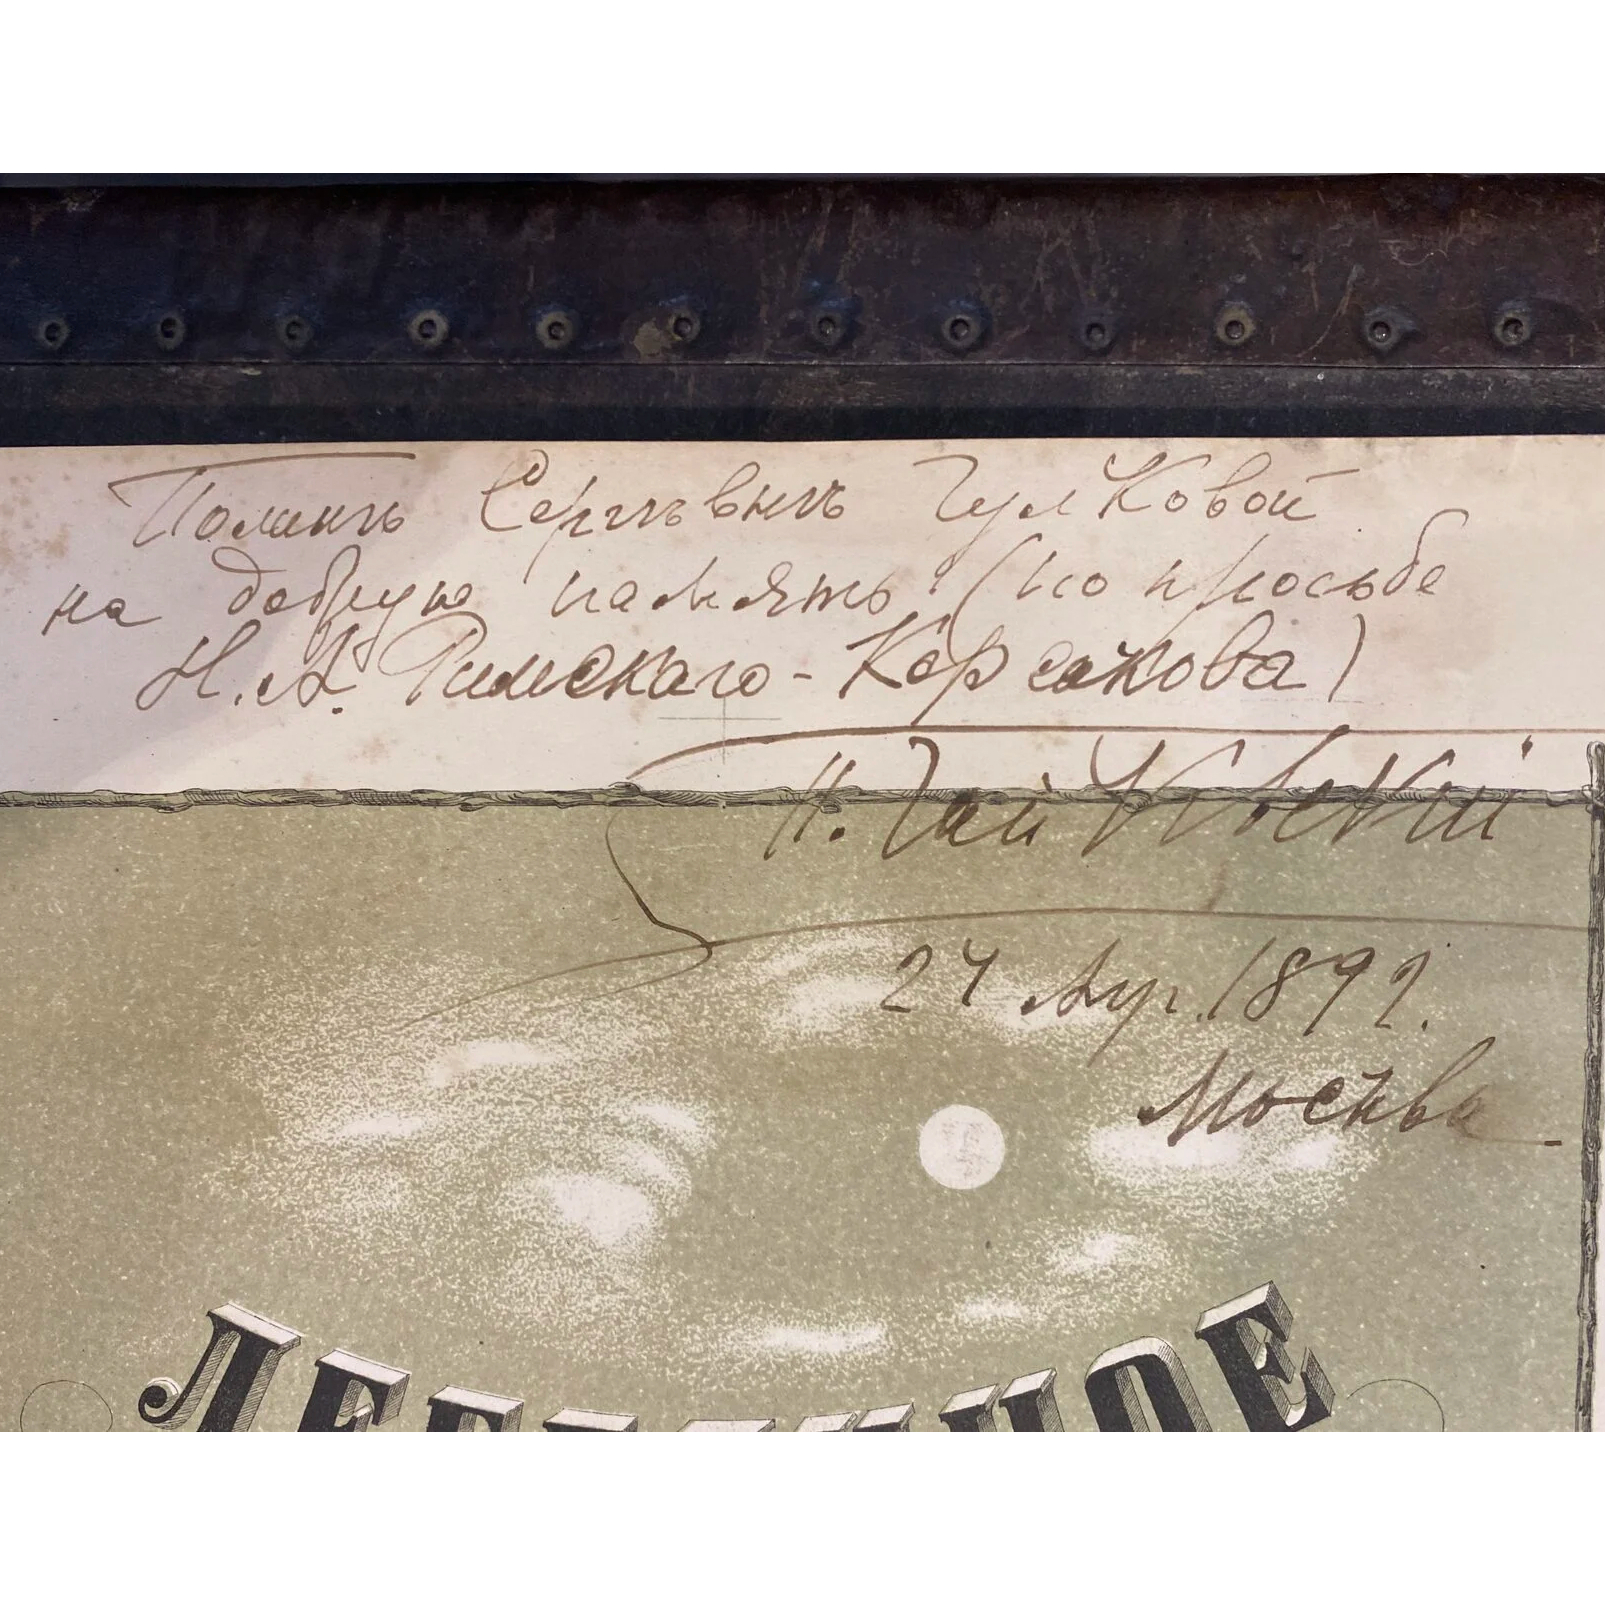 Полинѣ Сергѣевнѣ Чулковой
на добрую память (по просьбе
Н. А. Римскаго-Корсакова)
П. Чайковскій
24 Апр. 1892.
Москва
ЛЕБЕДИНОЕ